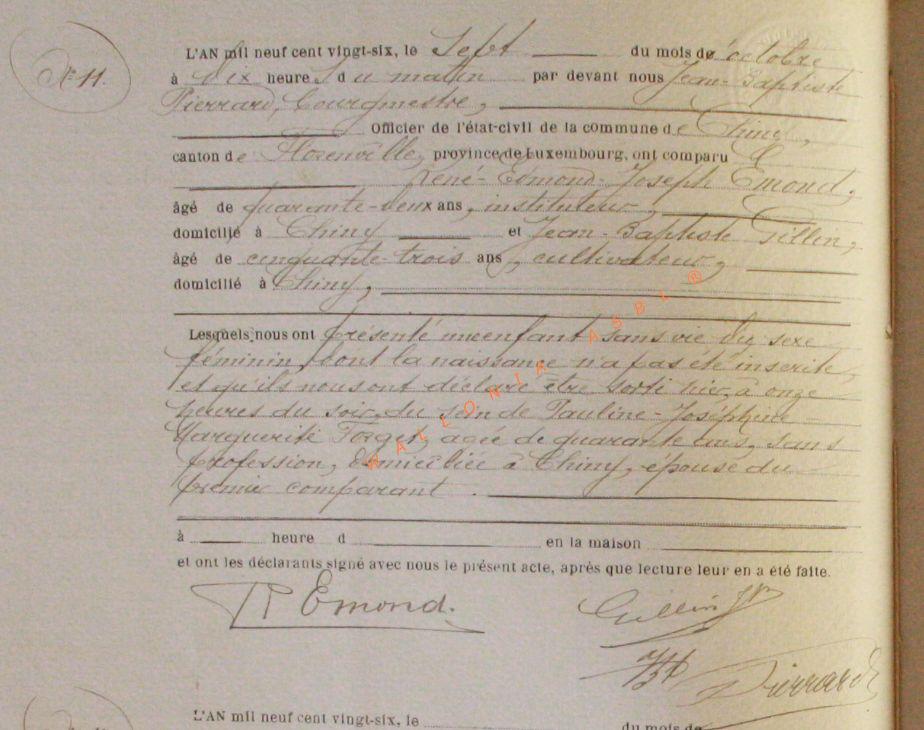 N° 11.
L'AN mil neuf cent vingt-six, le Sept du mois de octobre
à dix heures du matin par devant nous Jean-Baptiste
Pierrard, bourgmestre,
Officier de l'état-civil de la commune de Chiny,
canton de Florenville, province de Luxembourg, ont comparu
René-Edmond-Joseph Emond,
âgé de quarante-deux ans, instituteur,
domicilié à Chiny et Jean-Baptiste Gillen,
âgé de cinquante-trois ans, cultivateur,
domicilié à Chiny,
Lesquels nous ont présenté un enfant sans vie du sexe
féminin, dont la naissance n'a pas été inscrite,
et qu'ils nous ont déclaré être sorti hier, à onze
heures du soir, du sein de Pauline-Joséphine
Marguerite Forget, agée de quarante ans, sans
profession, domiciliée à Chiny, épouse du
premier comparant.
à heure d en la maison
et ont les déclarants signé avec nous le présent acte, après que lecture leur en a été faite.
R Emond.
Gillen
JB Pierrard
L'AN mil neuf cent vingt-six, le du mois de
WALLONIA ASBL ®